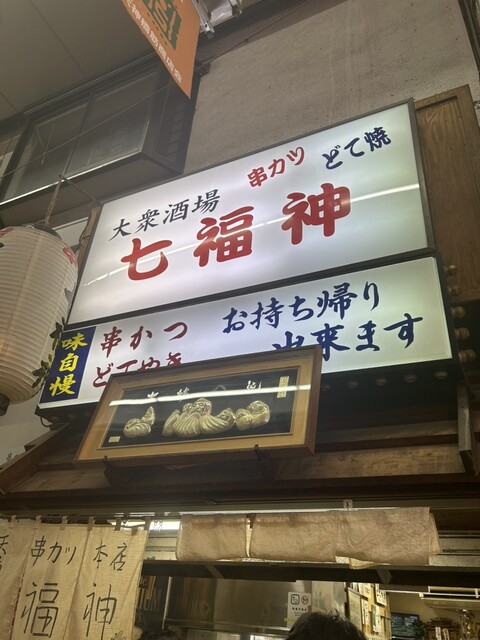 大衆酒場
串カツ
どて焼
七福神
味自慢
串かつ
どてやき
お持ち帰り
出来ます
串カツ
本店
福
神